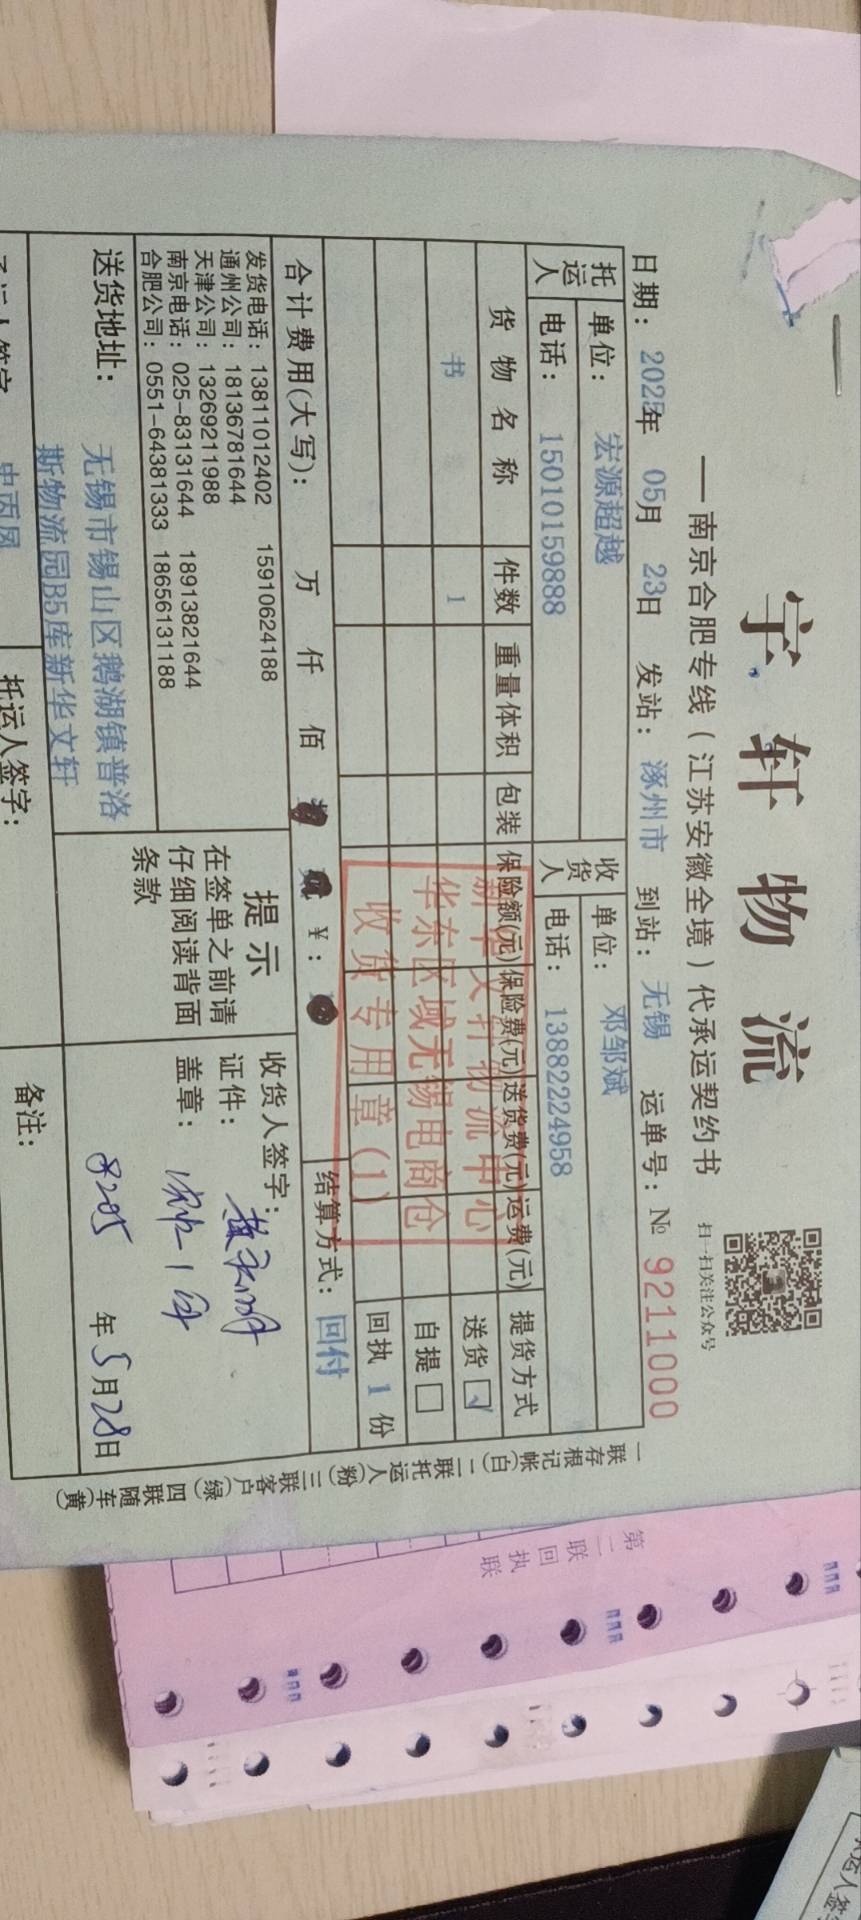 宇轩物流
—南京合肥专线(江苏安徽全境)代承运契约书
扫一扫关注公众号
日期: 2025年 05月 23日 发站: 涿州市 到站: 无锡 运单号: № 9211000
托运人 单位: 宏源超越 收货人 单位: 邓邹斌
电话: 15010159888 电话: 13882224958
货物名称 件数 重量体积 包装 保险额(元) 保险费(元) 送货费(元) 运费(元) 提货方式
书 1 送货 ☑
自提 □
回执 1 份
新华文轩物流中心
华东区域无锡电商仓
收货专用章(1)
合计费用(大写): 万 仟 佰 ¥: 结算方式: 回付
发货电话: 13811012402 15910624188
通州公司: 18136781644
天津公司: 13269211988
南京电话: 025-83131644 18913821644
合肥公司: 0551-64381333 18656131188
提示
在签单之前请
仔细阅读背面
条款
收货人签字:
证件:
盖章:
年 5月28日
送货地址: 无锡市锡山区鹅湖镇普洛
斯物流园B5库新华文轩
托运人签字:
备注:
一联存根记帐(白) 二联托运人(粉) 三联客户(绿) 四联随车(黄)
第二联 回执联